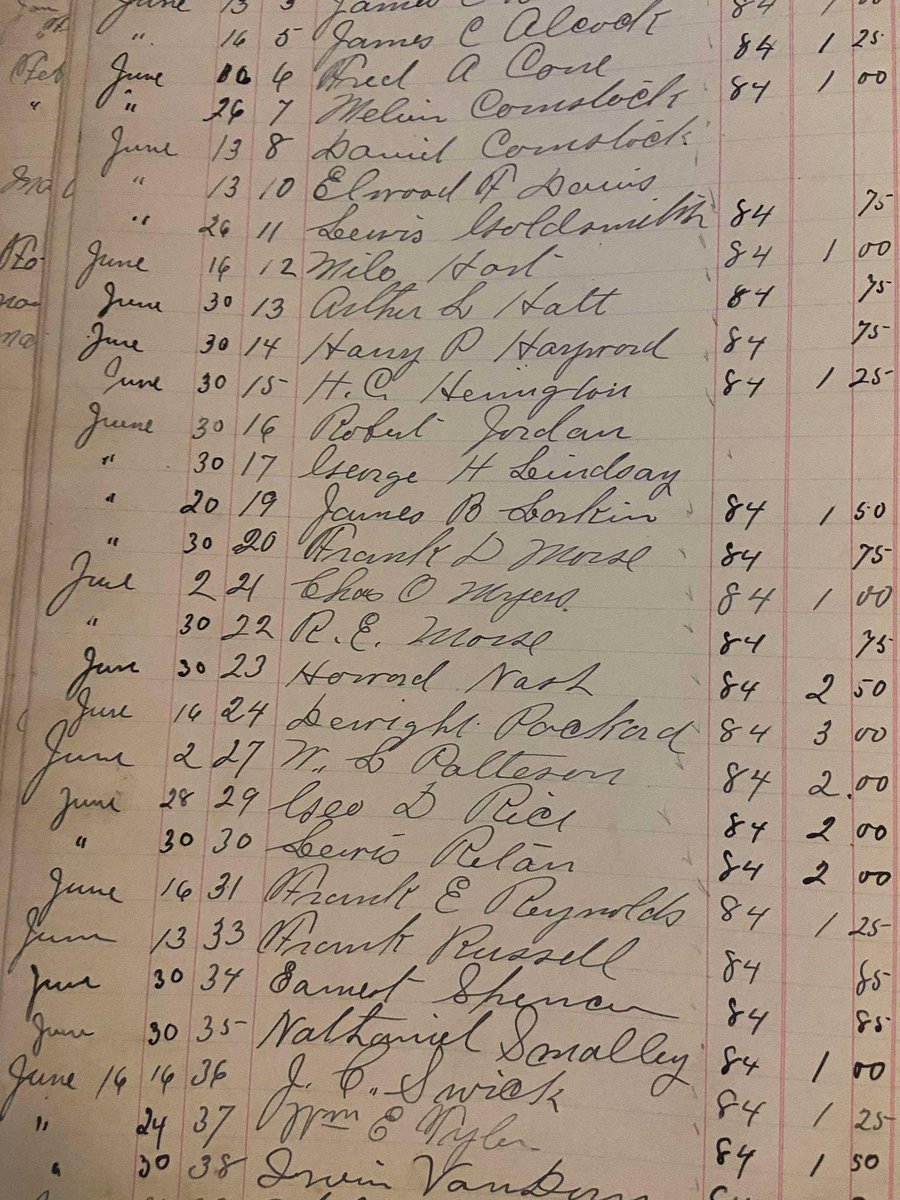 June 13 3 James C 84 1 00
" 16 5 James C Alcock 84 1 25
Feb June 16 6 Fred A Cone 84 1 00
" " 26 7 Melvin Comstock
June 13 8 Daniel Comstock
" 13 10 Elwood F Davis
" 26 11 Lewis Goldsmith 84 75
June 16 12 Milo Hart 84 1 00
June 30 13 Arthur L Hatt 84 75
June 30 14 Harry P Hayward 84 75
June 30 15 H.C. Herrington 84 1 25
June 30 16 Robert Jordan
" 30 17 George H Lindsay
" 20 19 James B Larkin 84 1 50
" 30 20 Frank D Morse 84 75
June 2 21 Chas O Myers 84 1 00
" 30 22 R.E. Morse 84 75
June 30 23 Howard Nash 84 2 50
June 16 24 Dewight Packard 84 3 00
June 2 27 W. L Patteson 84 2.00
June 28 29 Geo D Rice 84 2 00
" 30 30 Lewis Retan 84 2 00
June 16 31 Frank E Reynolds 84 1 25
June 13 33 Frank Russell 84 85
June 30 34 Earnest Spencer 84 85
June 30 35 Nathaniel Smalley 84 1 00
June 16 16 36 J. C. Swick 84 1 25
" 24 37 Wm E Tyler 84 1 50
" 30 38 Irwin